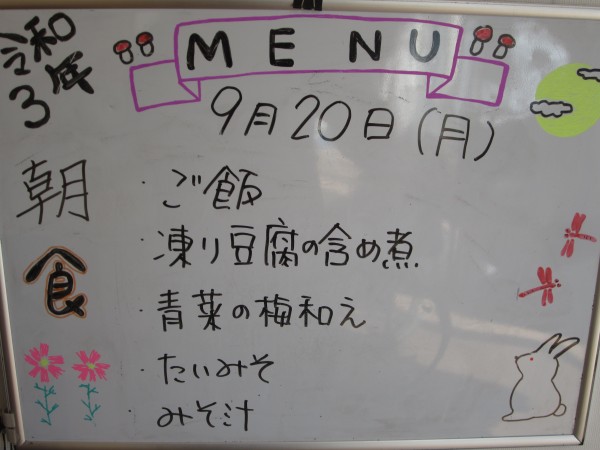 令和
3年
MENU
9月20日(月)
朝食
・ご飯
・凍り豆腐の含め煮
・青菜の梅和え
・たいみそ
・みそ汁